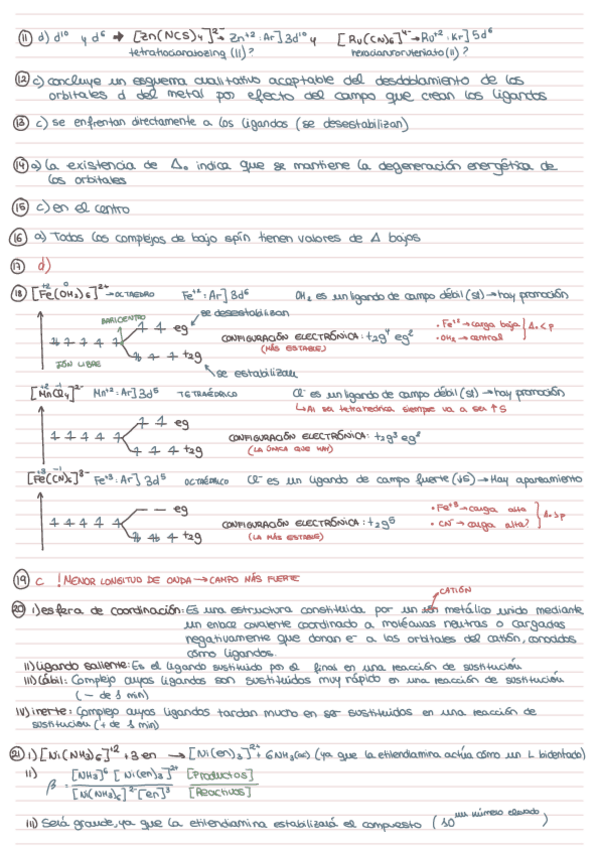 11 d) d¹⁰ y d⁶ → [Zn(NCS)₄]²⁻ → Zn⁺² : Ar] 3d¹⁰ y [Ru(CN)₆]⁴⁻ → Ru⁺² : Kr] 5d⁶
12 c) concluye un esquema cualitativo aceptable del desdoblamiento de los
orbitales d del metal por efecto del campo que crean los ligandos
13 c) se enfrentan directamente a los ligandos (se desestabilizan)
14 a) la existencia de Δ₀ indica que se mantiene la degeneración energética de
los orbitales
15 c) en el centro
16 a) Todos los complejos de bajo spin tienen valores de Δ bajos
17 d)
18 [Fe(OH₂)₆]²⁺ → OCTAEDRO Fe⁺² : Ar] 3d⁶ OH₂ es un ligando de campo débil (SI) → hay promoción
+2 0
se desestabilizan
BARICENTRO
eg
CONFIGURACIÓN ELECTRÓNICA: t2g⁴ eg²
(MÁS ESTABLE)
• Fe⁺² → carga baja
• OH₂ → central
Δ₀<p
IÓN LIBRE
t2g
se estabilizan
[MnCl₄]²⁻ Mn⁺² : Ar] 3d⁵ TETRAÉDRICO Cl⁻ es un ligando de campo débil (SI) → hay promoción
+2 -1
↳ Al ser tetraédrica siempre va a ser ↑S
eg
CONFIGURACIÓN ELECTRÓNICA: t2g³ eg²
(LA ÚNICA QUE HAY)
t2g
[Fe(CN)₆]³⁻ Fe⁺³ : Ar] 3d⁵ OCTAÉDRICO Cl⁻ es un ligando de campo fuerte (VS) → Hay apareamiento
+3 -1
eg
CONFIGURACIÓN ELECTRÓNICA: t2g⁵
(LA MÁS ESTABLE)
• Fe⁺³ → carga alta
• CN⁻ → carga alta?
Δ₀>p
t2g
19 c ! MENOR LONGITUD DE ONDA → CAMPO MÁS FUERTE
CATIÓN
20 i) esfera de coordinación: Es una estructura constituida por un ión metálico unido mediante
un enlace covalente coordinado a moléculas neutras o cargadas
negativamente que donan e⁻ a los orbitales del catión, conocidas
cómo ligandos.
ii) ligando saliente: Es el ligando sustituido por el final en una reacción de sustitución
iii) lábil: Complejo cuyos ligandos son sustituidos muy rápido en una reacción de sustitución
(- de 1 min)
iv) inerte: Complejo cuyos ligandos tardan mucho en ser sustituidos en una reacción de
sustitución (+ de 1 min)
21 i) [Ni(NH₃)₆]⁺² + 3 en → [Ni(en)₃]²⁺ + 6NH₃(ac) (ya que la etilendiamina actúa cómo un L bidentado)
ii) β = [NH₃]⁶ [Ni(en)₃]²⁺ [Productos]
[Ni(NH₃)₆]²⁻ [en]³ [Reactivos]
iii) Será grande, ya que la etilendiamina estabilizará el compuesto (10 un número elevado)